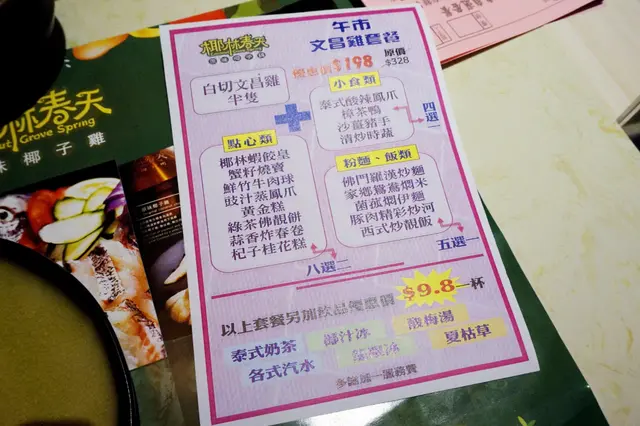 椰林春天
午市
文昌雞套餐
優惠價$198
原價
$328
白切文昌雞
半隻
小食類
泰式酸辣鳳爪
樟茶鴨
沙薑豬手
清炒時蔬
四選一
點心類
椰林蝦餃皇
蟹籽燒賣
鮮竹牛肉球
豉汁蒸鳳爪
黃金糕
綠茶佛靚餅
蒜香炸春卷
杞子桂花糕
八選二
粉麵、飯類
佛門羅漢炒麵
家鄉鴛鴦燜米
菌菇燜伊麵
豚肉精彩炒河
西式炒靚飯
五選一
以上套餐另加飲品優惠價
$9.8一杯
泰式奶茶
椰汁冰
酸梅湯
各式汽水
夏枯草
林春天
ut Grove Spring
味椰子雞